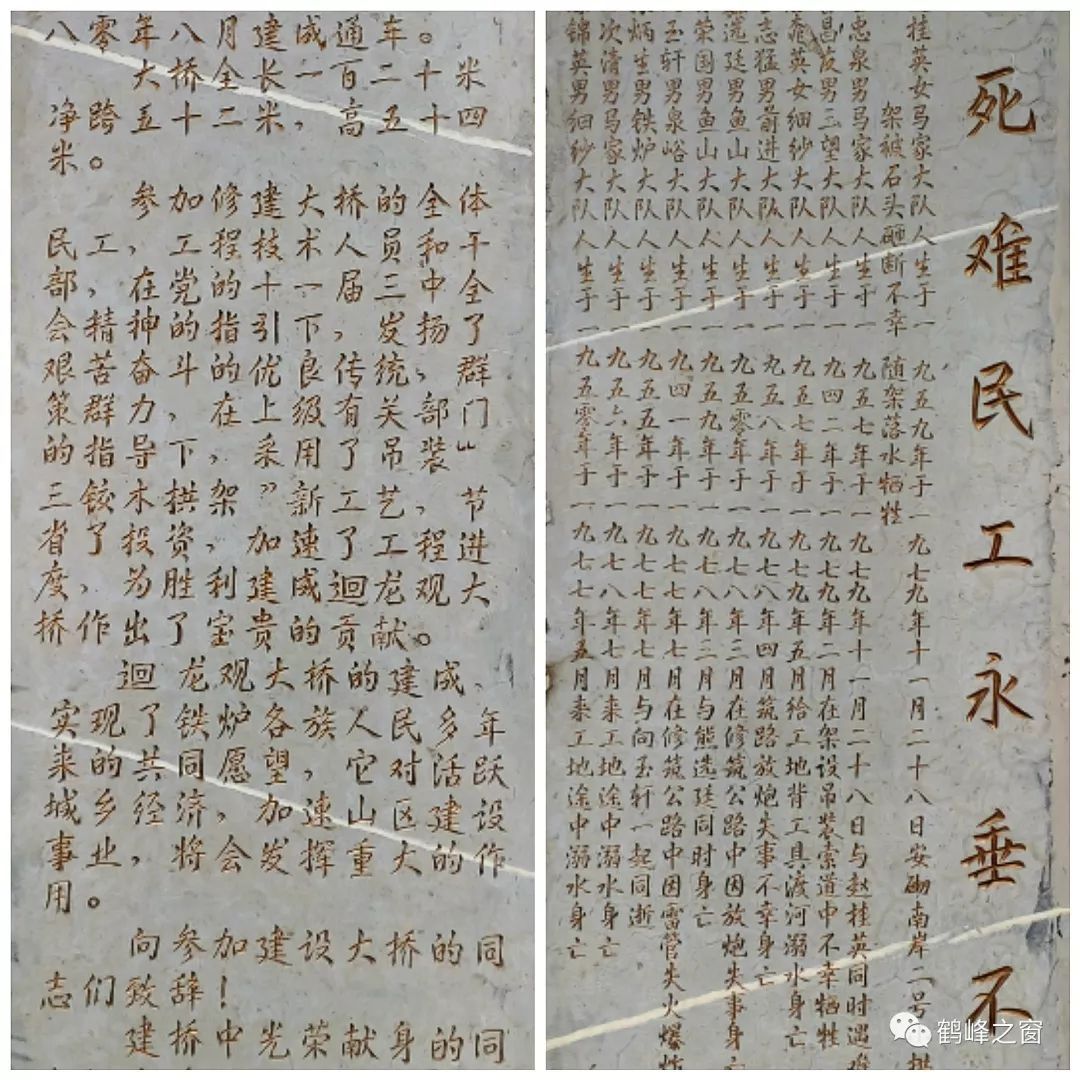 八零年八月建成通车。
大桥全长一百二十米
净跨五十二米,高五十四
米。
参加修建大桥的全体
民工,工程技术人员和干
部,在党的十一届三中全
会精神的指引下,发扬了
艰苦奋斗的优良传统,群
策群力,在上级有关部门
的指导下,采用了吊装“
三铰木拱架”新工艺,节
省了投资,加速了工程进
度,为胜利建成迴龙观大
桥作出了宝贵的贡献。
迴龙观大桥的建成、
实现了铁炉各族人民多年
来的共同愿望,它对活跃
城乡经济,加速山区建设
事业,将会发挥重大的作
用。
向参加建设大桥的同
志们致辞!
建桥中光荣献身的同
死难民工永垂不
桂英女马家大队人生于一九五九年于一九七九年十一月二十八日安砌南岸二号拱
架被石头砸断不幸随架落水牺牲
忠泉男马家大队人生于一九五七年于一九七九年十一月二十八日与赵桂英同时遇难
昌友男三望大队人生于一九四二年于一九七九年二月在架设吊装索道中不幸牺牲
英女细纱大队人生于一九五七年于一九七九年五月给工地背工具渡河溺水身亡
志猛男前进大队人生于一九五八年于一九七八年四月筑路放炮失事不幸身亡
选廷男鱼山大队人生于一九五零年于一九七八年三月在修筑公路中因放炮失事身亡
荣国男鱼山大队人生于一九五九年于一九七八年三月与熊选廷同时身亡
玉轩男泉峪大队人生于一九四一年于一九七七年七月在修筑公路中因雷管失火爆炸
炳生男铁炉大队人生于一九五五年于一九七七年七月与向玉轩一起同逝
次清男马家大队人生于一九五六年于一九七八年七月来工地途中溺水身亡
锦英男细纱大队人生于一九五零年于一九七七年五月来工地途中溺水身亡
鹤峰之窗